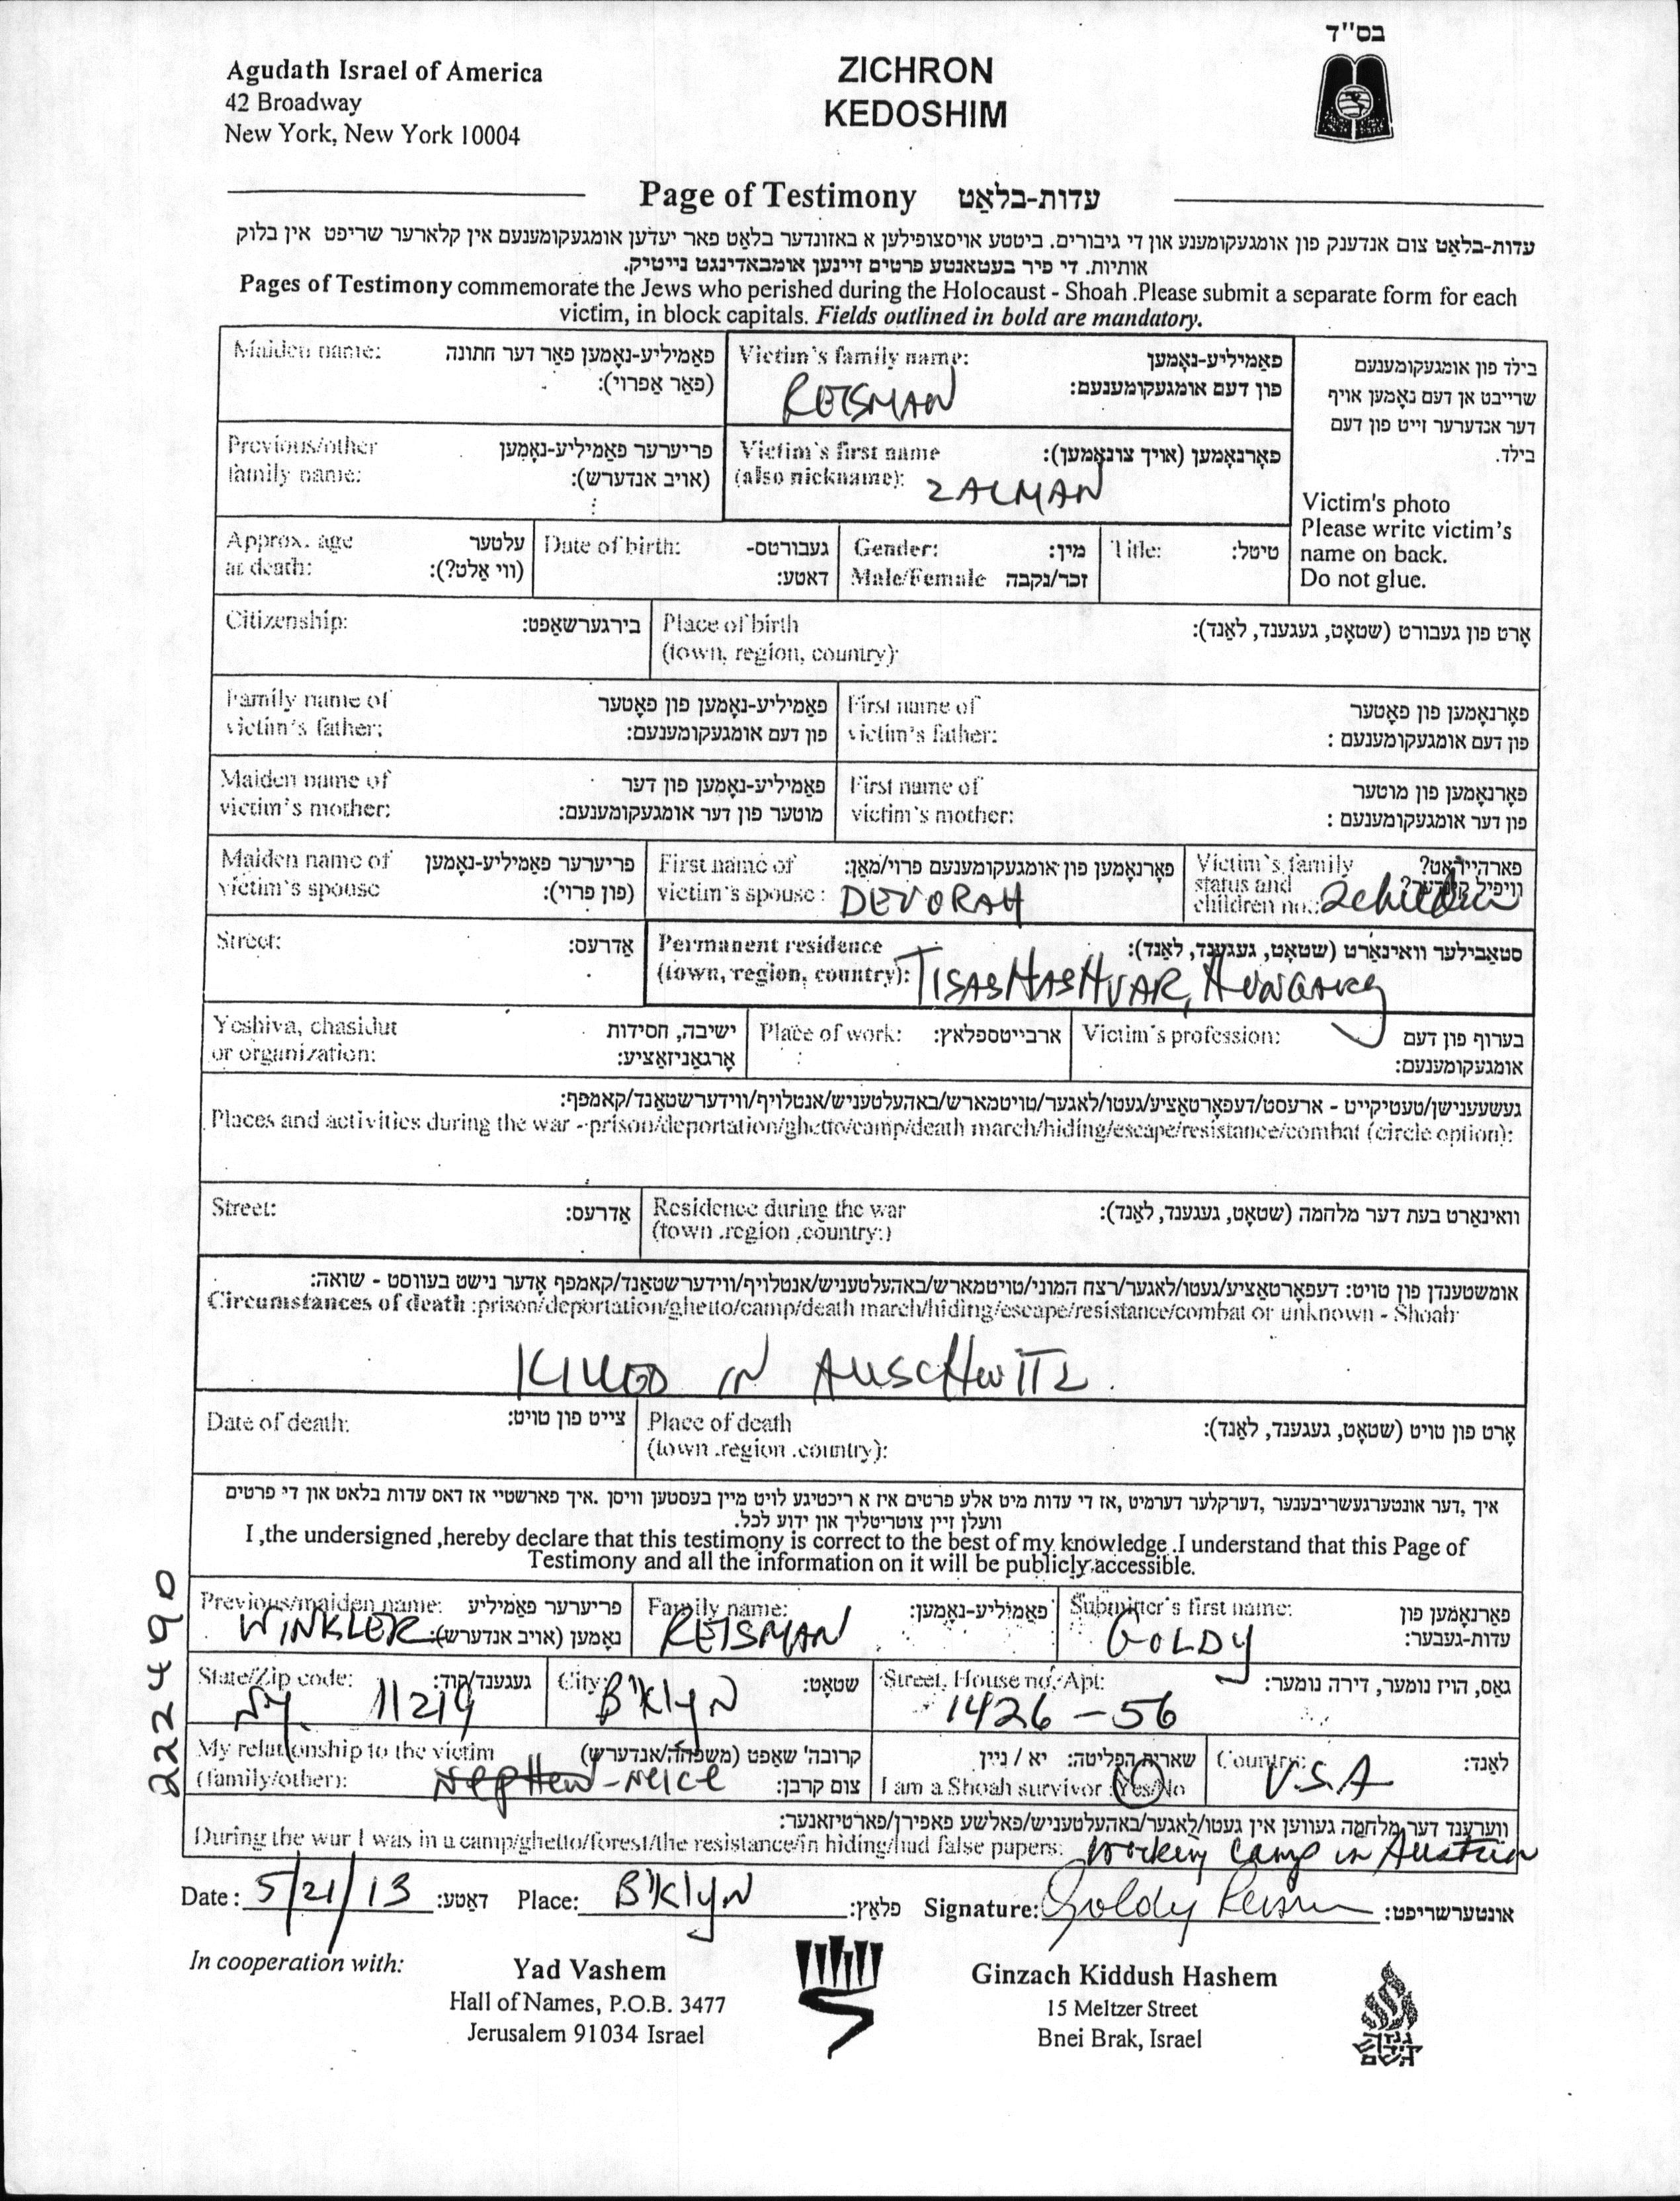 בס"ד
Agudath Israel of America
42 Broadway
New York, New York 10004
ZICHRON
KEDOSHIM
Page of Testimony עדות-בלאַט
עדות-בלאַט צום אנדענק פון אומגעקומענע און די גיבורים. ביטטע אויסצופילען א באזונדער בלאַט פאר יעדען אומגעקומענעם אין קלארער שריפט אין בלוק
אותיות. די פיר בעטאנטע פרטים זיינען אומבאדינגט נייטיק.
Pages of Testimony commemorate the Jews who perished during the Holocaust - Shoah .Please submit a separate form for each
victim, in block capitals. Fields outlined in bold are mandatory.
Maiden name: פאַמיליע-נאָמען פאַר דער חתונה
(פאַר אַפרוי):
Victim's family name: פאַמיליע-נאָמען
פון דעם אומגעקומענעם:
REISMAN
בילד פון אומגעקומענעם
שרייבט אן דעם נאָמען אויף
דער אנדערער זייט פון דעם
בילד.
Victim's photo
Please write victim's
name on back.
Do not glue.
Previous/other פריערער פאַמיליע-נאָמען
family name: (אויב אנדערש):
Victim's first name פאָרנאָמען (אויך צונאָמען):
(also nickname): ZALMAN
Approx. age עלטער
at death: (ווי אַלט?):
Date of birth: געבורטס-
דאטע:
Gender: מין:
Male/Female זכר/נקבה
Title: טיטל:
Citizenship: בירגערשאַפט:
Place of birth אָרט פון געבורט (שטאָט, געגענד, לאַנד):
(town, region, country):
Family name of פאַמיליע-נאָמען פון פאָטער
victim's father: פון דעם אומגעקומענעם:
First name of פאָרנאָמען פון פאָטער
victim's father: פון דעם אומגעקומענעם :
Maiden name of פאַמיליע-נאָמען פון דער
victim's mother: מוטער פון דער אומגעקומענעם:
First name of פאָרנאָמען פון מוטער
victim's mother: פון דער אומגעקומענעם :
Maiden name of פריערער פאַמיליע-נאָמען
victim's spouse (פון פרוי):
First name of פאָרנאָמען פון אומגעקומענעם פרוי/מאַן:
victim's spouse : DEVORAH
Victim's family פארהייראַט?
status and וויפיל קינדער?
children no.: 2 children
Street: אַדרעס:
Permanent residence סטאַבילער וואינאָרט (שטאָט, געגענד, לאַנד):
(town, region, country): TISASHASHVAR, HUNGARY
Yeshiva, chasidut ישיבה, חסידות
or organization: אָרגאַניזאַציע:
Place of work: ארבייטספלאַץ:
Victim's profession: בערוף פון דעם
אומגעקומענעם:
געשעענישן/טעטיקייט - ארעסט/דעפאָרטאַציע/געטו/לאגער/טויטמארש/באהעלטעניש/אנטלויף/ווידערשטאַנד/קאמפף:
Places and activities during the war - prison/deportation/ghetto/camp/death march/hiding/escape/resistance/combat (circle option):
Street: אַדרעס:
Residence during the war וואינאָרט בעת דער מלחמה (שטאָט, געגענד, לאַנד):
(town .region .country:)
אומשטענדן פון טויט: דעפאָרטאַציע/געטו/לאגער/רצח המוני/טויטמארש/באהעלטעניש/אנטלויף/ווידערשטאַנד/קאמפף אָדער נישט בעוווסט - שואה:
Circumstances of death :prison/deportation/ghetto/camp/death march/hiding/escape/resistance/combat or unknown - Shoah
KILLED IN AUSCHWITZ
Date of death: צייט פון טויט:
Place of death אָרט פון טויט (שטאָט, געגענד, לאַנד):
(town .region .country):
איך ,דער אונטערגעשריבענער ,דערקלער דערמיט ,אז די עדות מיט אלע פרטים איז א ריכטיגע לויט מיין בעסטען וויסן .איך פארשטיי אז דאס עדות בלאט און די פרטים
וועלן זיין צוטריטליך און ידוע לכל.
I ,the undersigned ,hereby declare that this testimony is correct to the best of my knowledge .I understand that this Page of
Testimony and all the information on it will be publicly accessible.
Previous/maiden name: פריערער פאַמיליע
WINKLER נאָמען (אויב אנדערש):
Family name: פאַמיליע-נאָמען:
REISMAN
Submitter's first name: פאָרנאָמען פון
עדות-געבער:
GOLDY
State/Zip code: געגענד/קוד:
NY. 11219
City: שטאָט:
B'KlyN
Street, House no, Apt: גאַס, הויז נומער, דירה נומער:
1426 - 56
My relationship to the victim קרובה' שאַפט (משפחה/אנדערש)
(family/other): Nephew - Neice צום קרבן:
שארית הפליטה: יא / ניין
I am a Shoah survivor :Yes/No
Country: לאַנד:
U.S.A
ווערענד דער מלחמה געווען אין געטו/לאגער/באהעלטעניש/פאלשע פאפירן/פארטיזאנער:
During the war I was in a camp/ghetto/forest/the resistance/in hiding/had false papers: working camp in Austria
Date : 5/21/13 דאַטע: Place: B'KlyN פלאַץ: Signature: Goldy Reisman אונטערשריפט:
In cooperation with:
Yad Vashem
Hall of Names, P.O.B. 3477
Jerusalem 91034 Israel
Ginzach Kiddush Hashem
15 Meltzer Street
Bnei Brak, Israel
גנזך
קידוש
השם
222490